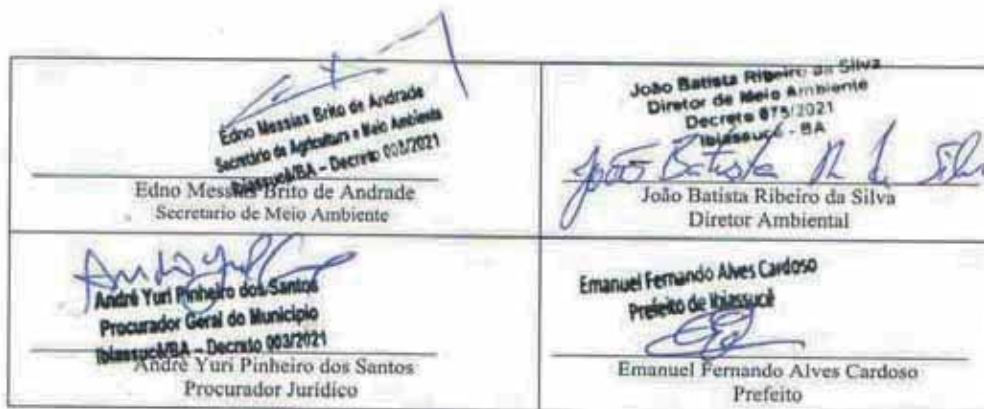 Edno Messias Brito de Andrade
Secretário de Agricultura e Meio Ambiente
Ibiassucê/BA – Decreto 003/2021
Edno Messias Brito de Andrade
Secretario de Meio Ambiente
João Batista Ribeiro da Silva
Diretor de Meio Ambiente
Decreto 075/2021
Ibiassucê - BA
João Batista R da Silva
João Batista Ribeiro da Silva
Diretor Ambiental
André Yuri Pinheiro dos Santos
Procurador Geral do Municipio
Ibiassucê/BA – Decreto 003/2021
André Yuri Pinheiro dos Santos
Procurador Jurídico
Emanuel Fernando Alves Cardoso
Prefeito de Ibiassucê
Emanuel Fernando Alves Cardoso
Prefeito